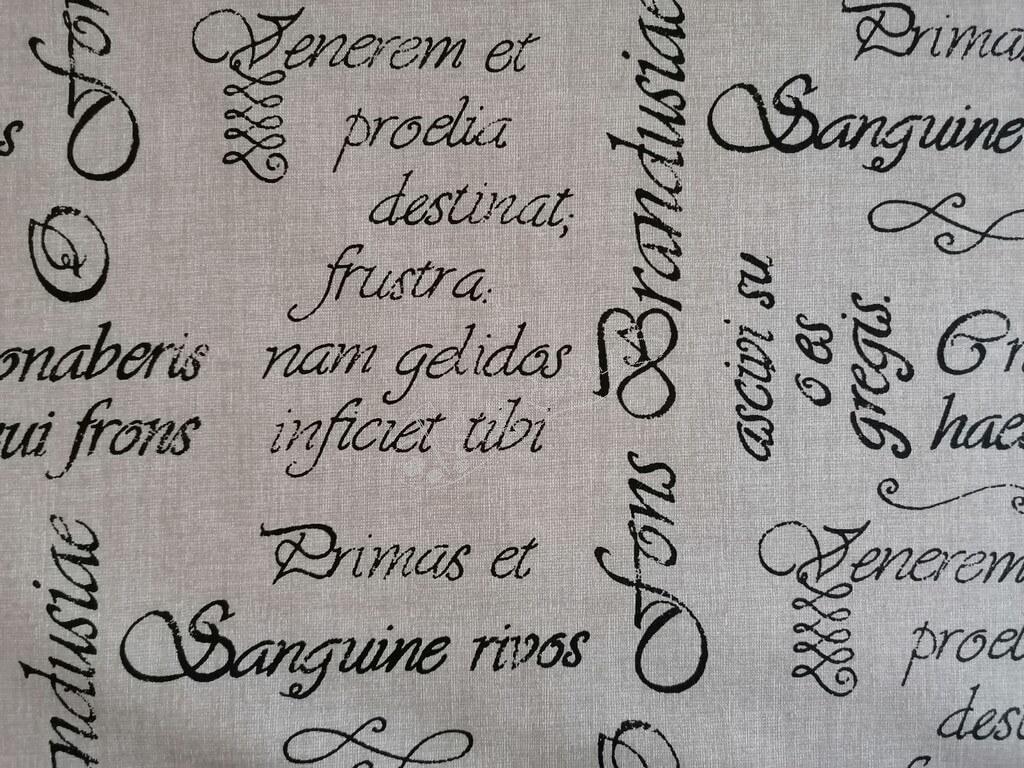 O fons
Venerem et
proelia
destinat;
frustra:
nam gelidos
inficiet tibi
Primas et
Sanguine rivos
O fons Brandusiae
Primas
Sanguine
ascivi su
o es
gregis.
Cr
haes
Venerem
proel
dest
s
onaberis
ui frons
ndusiae